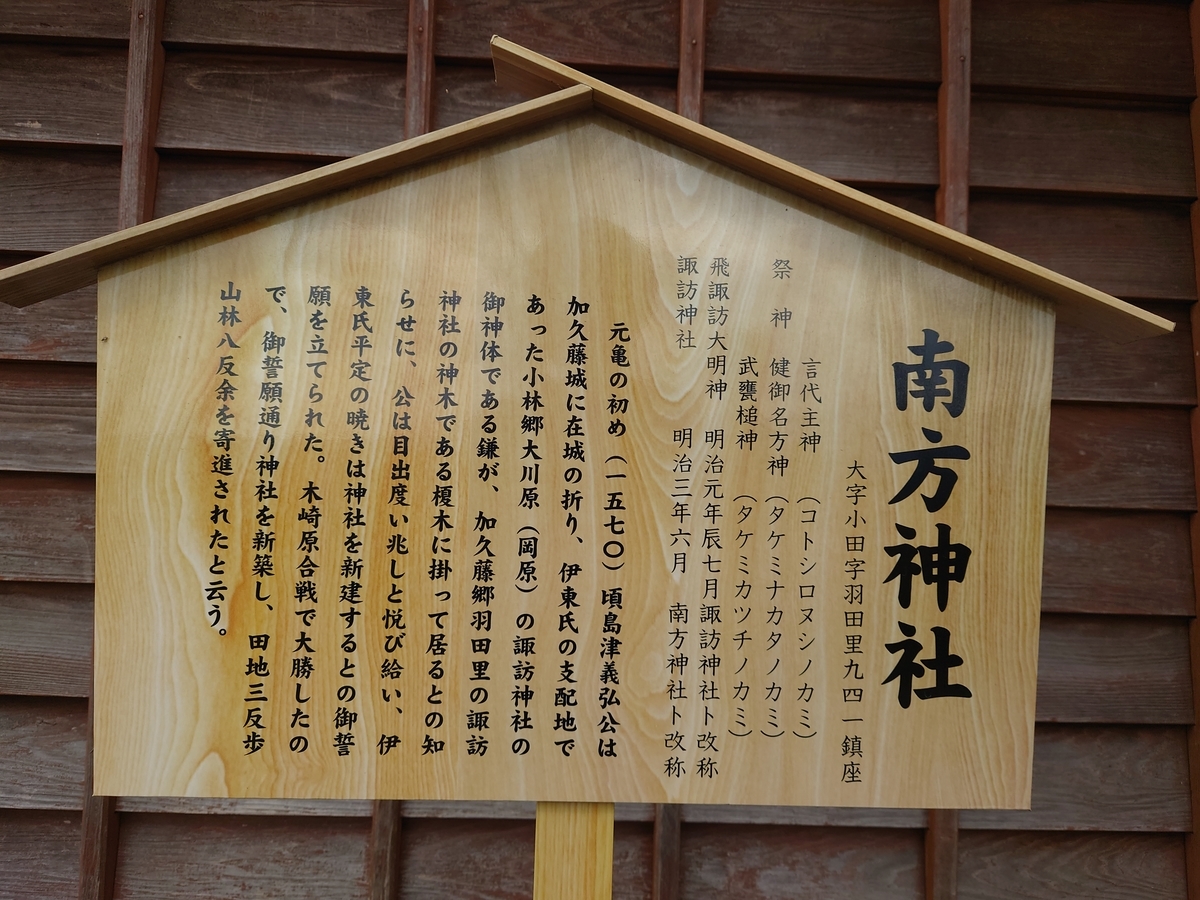 南方神社
大字小田字羽田里九四一鎮座
言代主神　（コトシロヌシノカミ）
祭　神　健御名方神　（タケミナカタノカミ）
武甕槌神　（タケミカツチノカミ）
飛諏訪大明神　明治元年辰七月諏訪神社ト改称
諏訪神社　明治三年六月　南方神社ト改称
元亀の初め（一五七〇）頃島津義弘公は
加久藤城に在城の折り、伊東氏の支配地で
あった小林郷大川原（岡原）の諏訪神社の
御神体である鎌が、加久藤郷羽田里の諏訪
神社の神木である榎木に掛って居るとの知
らせに、公は目出度い兆しと悦び給い、伊
東氏平定の暁きは神社を新建するとの御誓
願を立てられた。木崎原合戦で大勝したの
で、御誓願通り神社を新築し、田地三反歩
山林八反余を寄進されたと云う。